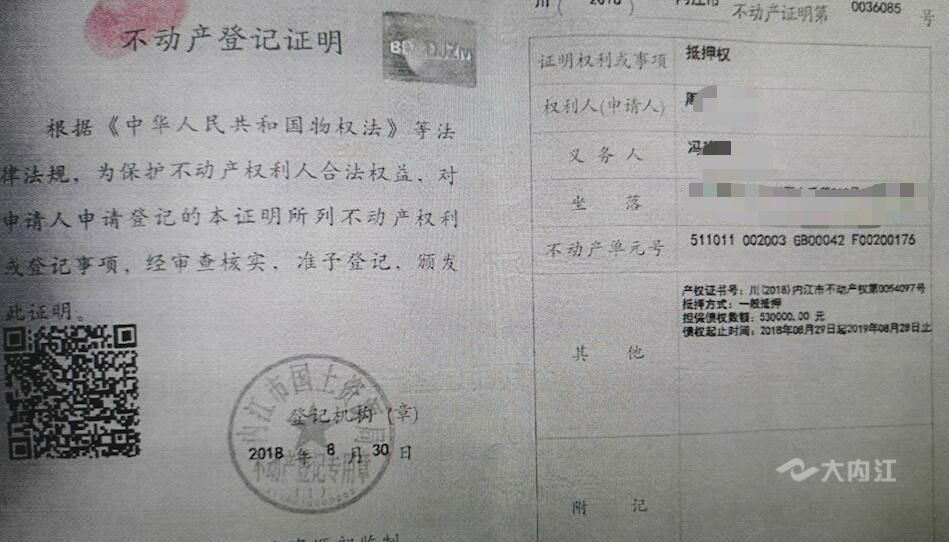 不动产登记证明
根据《中华人民共和国物权法》等法
律法规，为保护不动产权利人合法权益，对
申请人申请登记的本证明所列不动产权利
或登记事项，经审查核实，准予登记，颁发
此证明。
内江市国土资源局
登记机构（章）
2018 年 8 月 30 日
不动产登记专用章
川（ 2018 ）内江市 不动产证明第 0036085 号
证明权利或事项 抵押权
权利人(申请人) 周
义务人 冯
坐落
不动产单元号 511011 002003 GB00042 F00200176
其他
产权证书号：川(2018)内江市不动产权第0054097号
抵押方式：一般抵押
担保债权数额：530000.00 元
债权起止时间：2018年08月29日起2019年08月28日止
附记
大内江